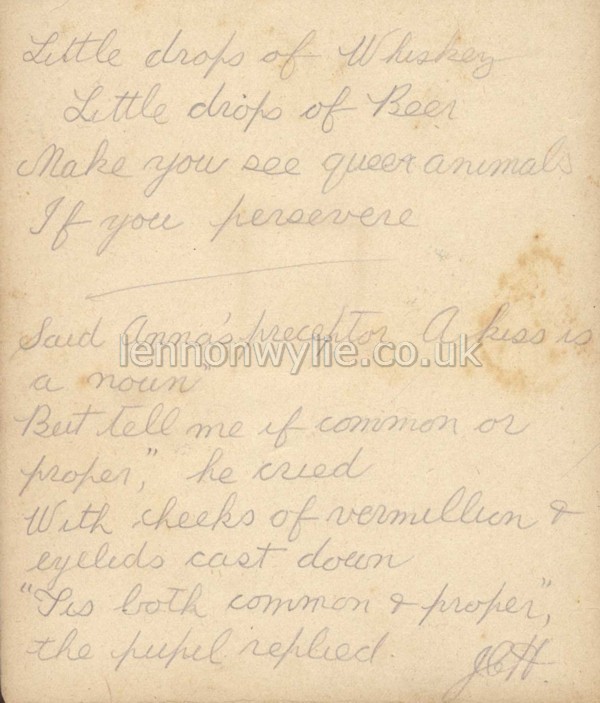 Little drops of Whiskey
Little drops of Beer
Make you see queer animals
If you persevere
Said Anna's preceptor "A kiss is
lennonwylie.co.uk
a noun"
But tell me if common or
proper," he cried
With cheeks of vermillion &
eyelids cast down
"Tis both common & proper",
the pupil replied.
JCH